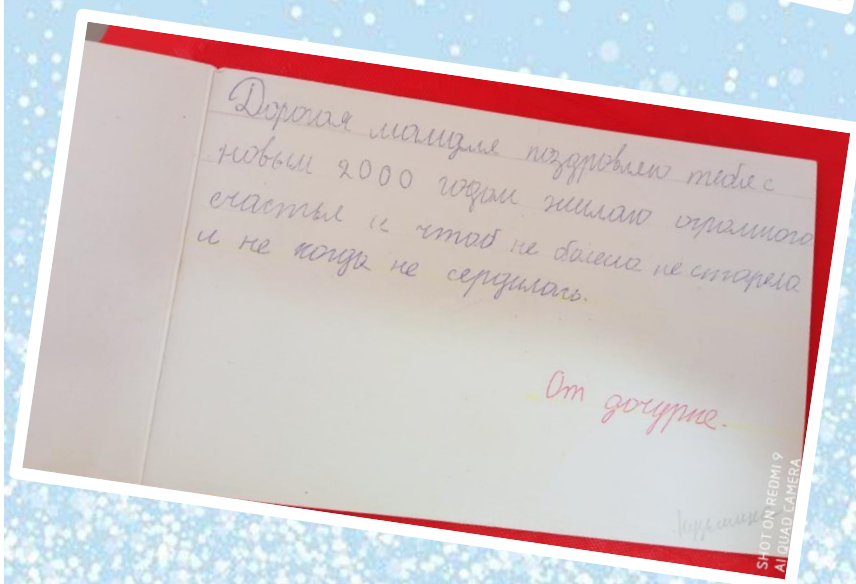 Дорогая мамуля поздровляю тебя с
новым 2000 годом жилаю огромного
счастья и чтоб не болела не старела
и не когда не сердилась.
От дочурке.
SHOT ON REDMI 9
AI QUAD CAMERA